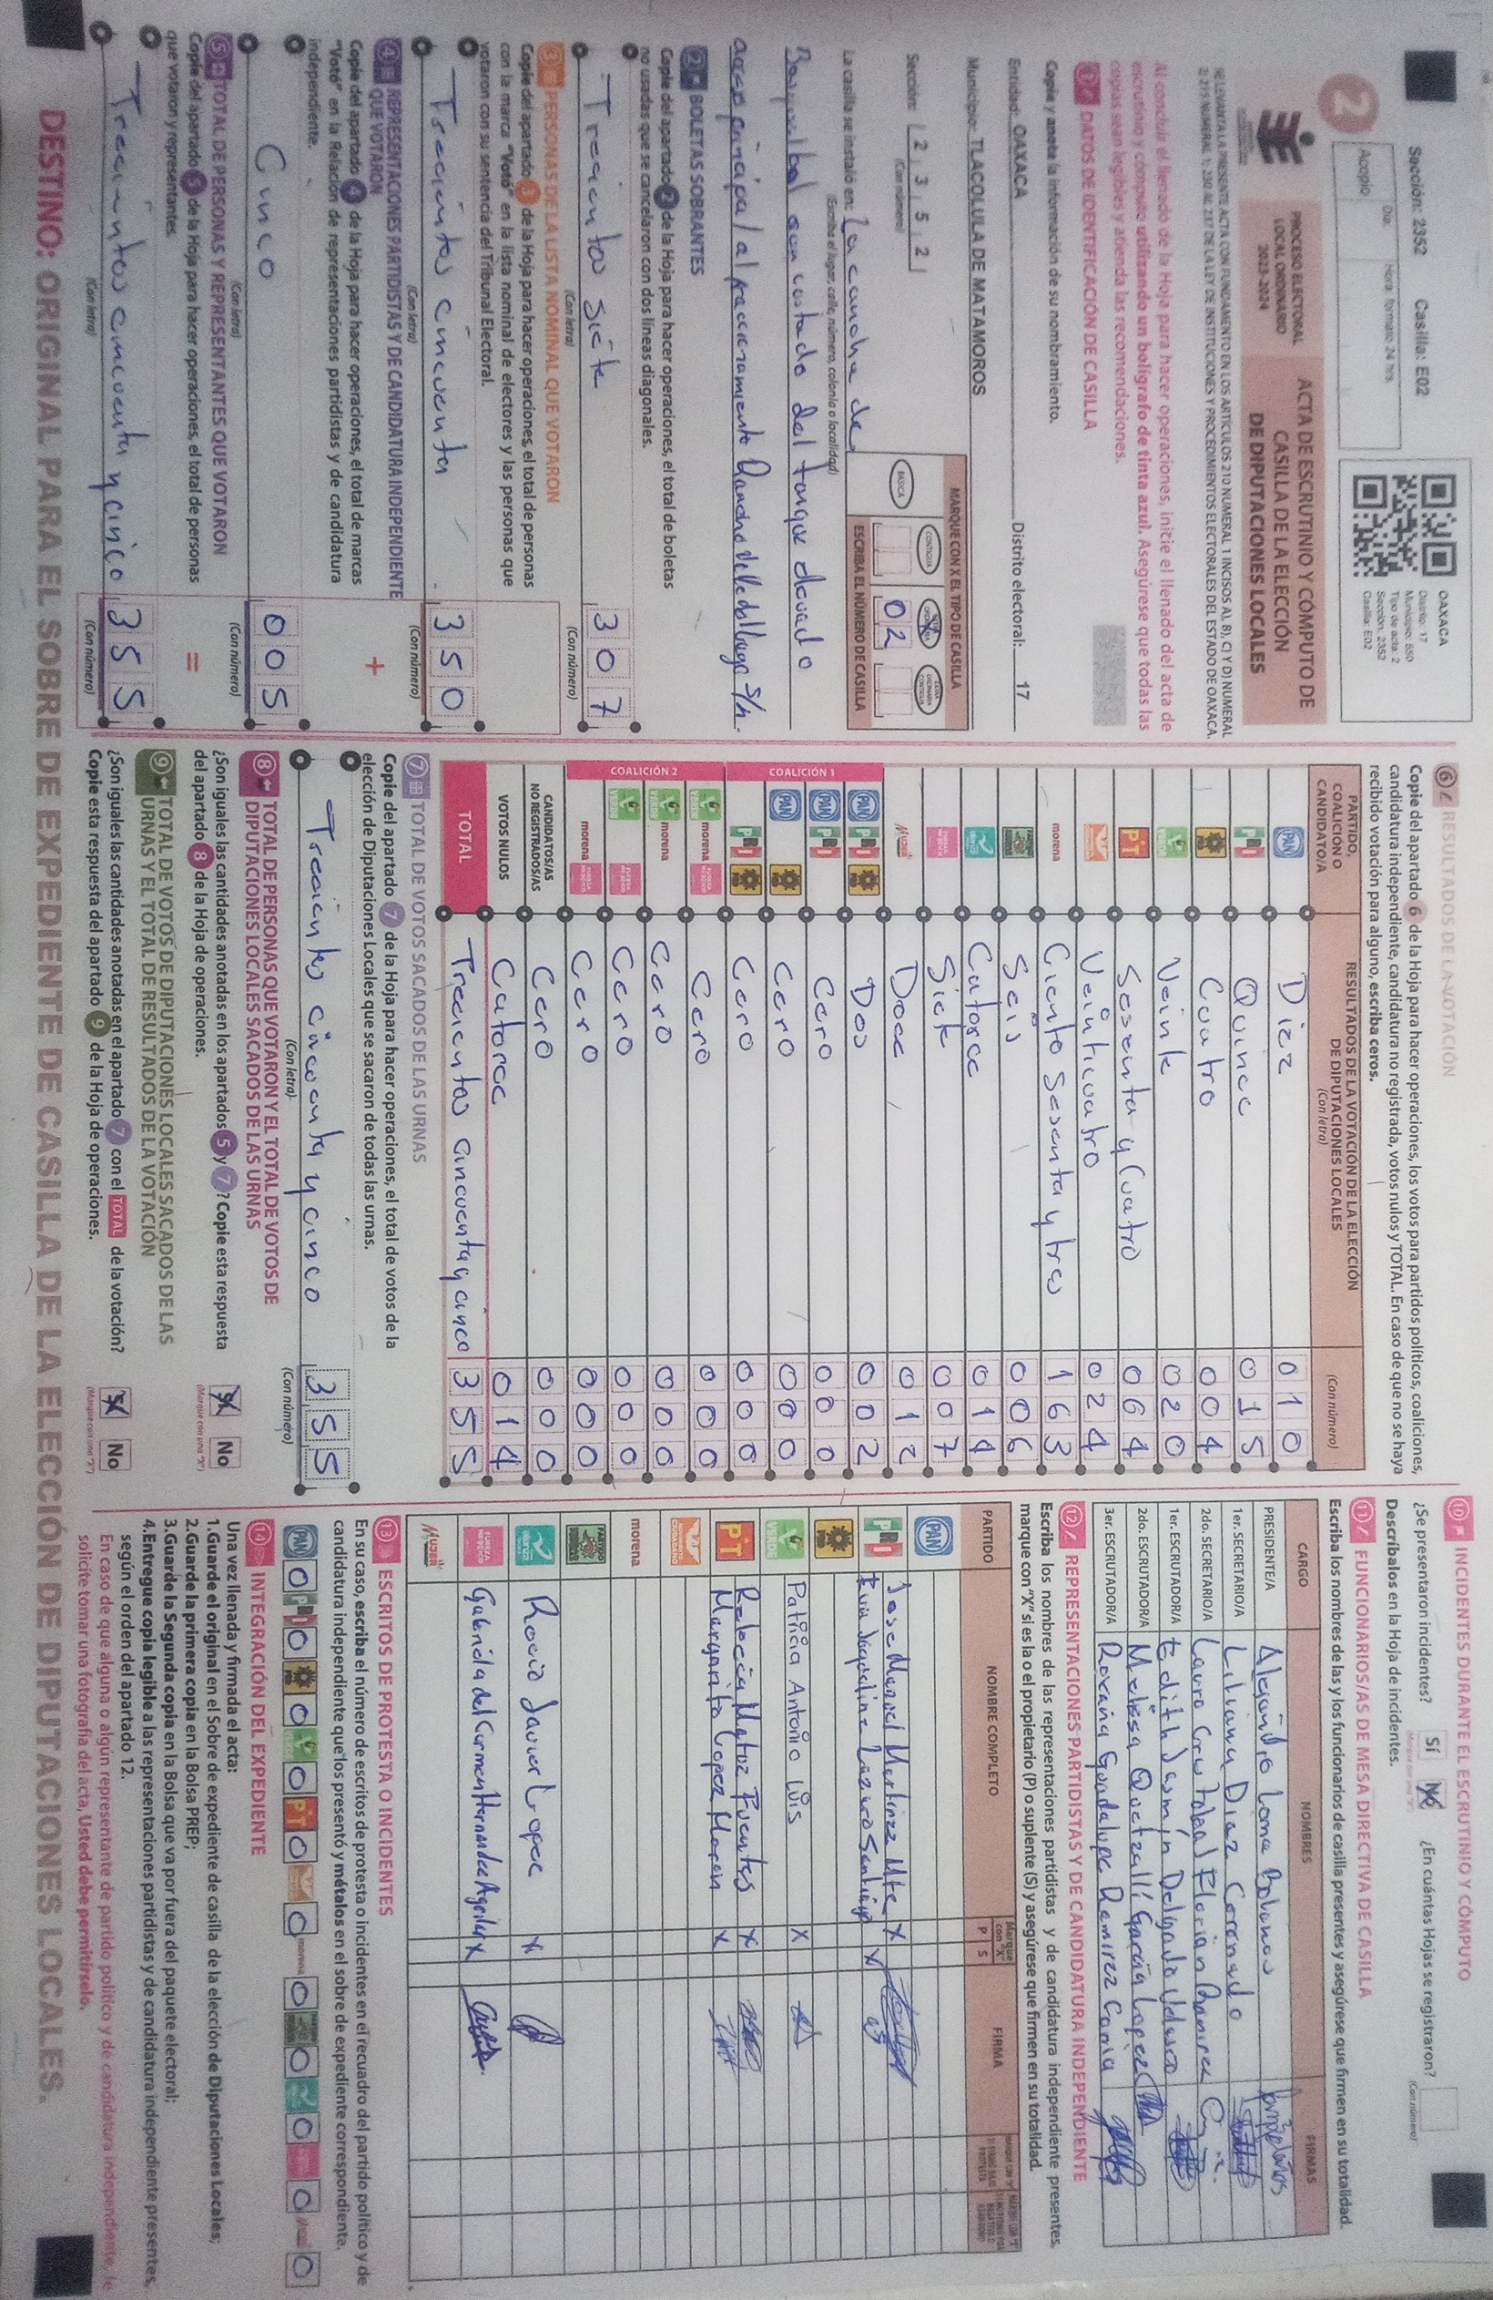 Sección: 2352 Casilla: E02
Día: Hora: formato 24 hrs.
Acopio
OAXACA
Distrito: 17
Municipio: 550
Tipo de acta: 2
Sección: 2352
Casilla: E02
2
PROCESO ELECTORAL
LOCAL ORDINARIO
2023-2024
ACTA DE ESCRUTINIO Y CÓMPUTO DE
CASILLA DE LA ELECCIÓN
DE DIPUTACIONES LOCALES
SE LEVANTA LA PRESENTE ACTA CON FUNDAMENTO EN LOS ARTÍCULOS 210 NUMERAL 1 INCISOS A), B), C) Y D) NUMERAL
2; 219 NUMERAL 1; 230 AL 237 DE LA LEY DE INSTITUCIONES Y PROCEDIMIENTOS ELECTORALES DEL ESTADO DE OAXACA.
Al concluir el llenado de la Hoja para hacer operaciones, inicie el llenado del acta de
escrutinio y cómputo utilizando un bolígrafo de tinta azul. Asegúrese que todas las
copias sean legibles y atienda las recomendaciones.
1 DATOS DE IDENTIFICACIÓN DE CASILLA
Copie y anote la información de su nombramiento.
Entidad: OAXACA Distrito electoral: 17
Municipio: TLACOLULA DE MATAMOROS
Sección: 2 3 5 2
(Con número)
MARQUE CON X EL TIPO DE CASILLA
BÁSICA CONTIGUA
02
ESCRIBA EL NÚMERO DE CASILLA
La casilla se instaló en: La cancha de
(Escriba el lugar, calle, número, colonia o localidad)
Basquetbol aun costado del tanque elevado
acceso principal al fraccionamiento Rancho Valle del Lago S/N.
2 BOLETAS SOBRANTES
Copie del apartado 2 de la Hoja para hacer operaciones, el total de boletas
no usadas que se cancelaron con dos líneas diagonales.
Trecientos siete 307
(Con letra) (Con número)
3 PERSONAS DE LA LISTA NOMINAL QUE VOTARON
Copie del apartado 3 de la Hoja para hacer operaciones, el total de personas
con la marca "Votó" en la lista nominal de electores y las personas que
votaron con su sentencia del Tribunal Electoral.
Trecientos cincuenta 350
(Con letra) (Con número)
4 REPRESENTACIONES PARTIDISTAS Y DE CANDIDATURA INDEPENDIENTE
QUE VOTARON
Copie del apartado 4 de la Hoja para hacer operaciones, el total de marcas
"Votó" en la Relación de representaciones partidistas y de candidatura
independiente.
+
Cinco 005
(Con letra) (Con número)
5 TOTAL DE PERSONAS Y REPRESENTANTES QUE VOTARON
Copie del apartado 5 de la Hoja para hacer operaciones, el total de personas
que votaron y representantes.
=
Trecientos cincuenta y cinco 355
(Con letra) (Con número)
6 RESULTADOS DE LA VOTACIÓN
Copie del apartado 6 de la Hoja para hacer operaciones, los votos para partidos políticos, coaliciones,
candidatura independiente, candidatura no registrada, votos nulos y TOTAL. En caso de que no se haya
recibido votación para alguno, escriba ceros.
PARTIDO, COALICIÓN O CANDIDATO/A
RESULTADOS DE LA VOTACIÓN DE LA ELECCIÓN
DE DIPUTACIONES LOCALES
(Con letra) (Con número)
PAN Diez 010
PRI Quince 015
PRD Cuatro 004
VERDE Veinte 020
PT Sesenta y Cuatro 064
Veinticuatro 024
morena Ciento sesenta y tres 163
Seis 006
Catorce 014
Siete 007
MUJER Doce 012
COALICIÓN 1
PAN PRI PRD Dos 002
PAN PRI Cero 000
PAN PRD Cero 000
PRI PRD Cero 000
COALICIÓN 2
VERDE morena FUERZA MÉXICO Cero 000
VERDE morena Cero 000
VERDE FUERZA MÉXICO Cero 000
morena FUERZA MÉXICO Cero 000
CANDIDATOS/AS NO REGISTRADOS/AS Cero 000
VOTOS NULOS Catorce 014
TOTAL Trecientos cincuenta y cinco 355
7 TOTAL DE VOTOS SACADOS DE LAS URNAS
Copie del apartado 7 de la Hoja para hacer operaciones, el total de votos de la
elección de Diputaciones Locales que se sacaron de todas las urnas.
Trecientos cincuenta y cinco 355
(Con letra) (Con número)
8 TOTAL DE PERSONAS QUE VOTARON Y EL TOTAL DE VOTOS DE
DIPUTACIONES LOCALES SACADOS DE LAS URNAS
¿Son iguales las cantidades anotadas en los apartados 5 y 7? Copie esta respuesta
del apartado 8 de la Hoja de operaciones.
Sí No
(Marque con una "X")
9 TOTAL DE VOTOS DE DIPUTACIONES LOCALES SACADOS DE LAS
URNAS Y EL TOTAL DE RESULTADOS DE LA VOTACIÓN
¿Son iguales las cantidades anotadas en el apartado 7 con el TOTAL de la votación?
Copie esta respuesta del apartado 9 de la Hoja de operaciones.
Sí No
(Marque con una "X")
10 INCIDENTES DURANTE EL ESCRUTINIO Y CÓMPUTO
¿Se presentaron incidentes? Sí No ¿En cuántas Hojas se registraron?
(Con número)
Descríbalos en la Hoja de incidentes.
11 FUNCIONARIOS/AS DE MESA DIRECTIVA DE CASILLA
Escriba los nombres de las y los funcionarios de casilla presentes y asegúrese que firmen en su totalidad.
CARGO NOMBRES FIRMAS
PRESIDENTE/A Alejandro Luna Bolanos
1er. SECRETARIO/A Liliana Diaz Coronado
2do. SECRETARIO/A Laura Cristobal Florian Ramirez
1er. ESCRUTADOR/A Edith Jasmín Delgado Valdero
2do. ESCRUTADOR/A Melissa Quetzalli García López
3er. ESCRUTADOR/A Roxana Guadalupe Ramirez Coria
12 REPRESENTACIONES PARTIDISTAS Y DE CANDIDATURA INDEPENDIENTE
Escriba los nombres de las representaciones partidistas y de candidatura independiente presentes,
marque con "X" si es la o el propietario (P) o suplente (S) y asegúrese que firmen en su totalidad.
PARTIDO NOMBRE COMPLETO Marque con "X" P S FIRMA
PAN Jose Manuel Martinez Mte X
PRI Evia Jaqueline Lazaro Santiago X
PRD
VERDE Patricia Antonio Luis X
PT Rebeca Matuz Fuentes X
Margarito Lopez Moren X
MOVIMIENTO CIUDADANO
morena
Rocio Javier Lopez X
FUERZA MÉXICO Gabriela del Carmen Hernandez Aguilar X
MUJER
13 ESCRITOS DE PROTESTA O INCIDENTES
En su caso, escriba el número de escritos de protesta o incidentes en el recuadro del partido político y de
candidatura independiente que los presentó y métalos en el sobre de expediente de casilla correspondiente.
PAN 0 PRI 0 PRD 0 VERDE 0 PT 0 0 morena 0 0 0 0 0
14 INTEGRACIÓN DEL EXPEDIENTE
Una vez llenada y firmada el acta:
1.Guarde el original en el Sobre de expediente de casilla de la elección de Diputaciones Locales;
2.Guarde la primera copia en la Bolsa PREP;
3.Guarde la Segunda copia en la Bolsa que va por fuera del paquete electoral;
4.Entregue copia legible a las representaciones partidistas y de candidatura independiente presentes,
según el orden del apartado 12.
En caso de que alguna o algún representante de partido político y de candidatura independiente, le
solicite tomar una fotografía del acta, Usted debe permitírselo.
DESTINO: ORIGINAL PARA EL SOBRE DE EXPEDIENTE DE CASILLA DE LA ELECCIÓN DE DIPUTACIONES LOCALES.